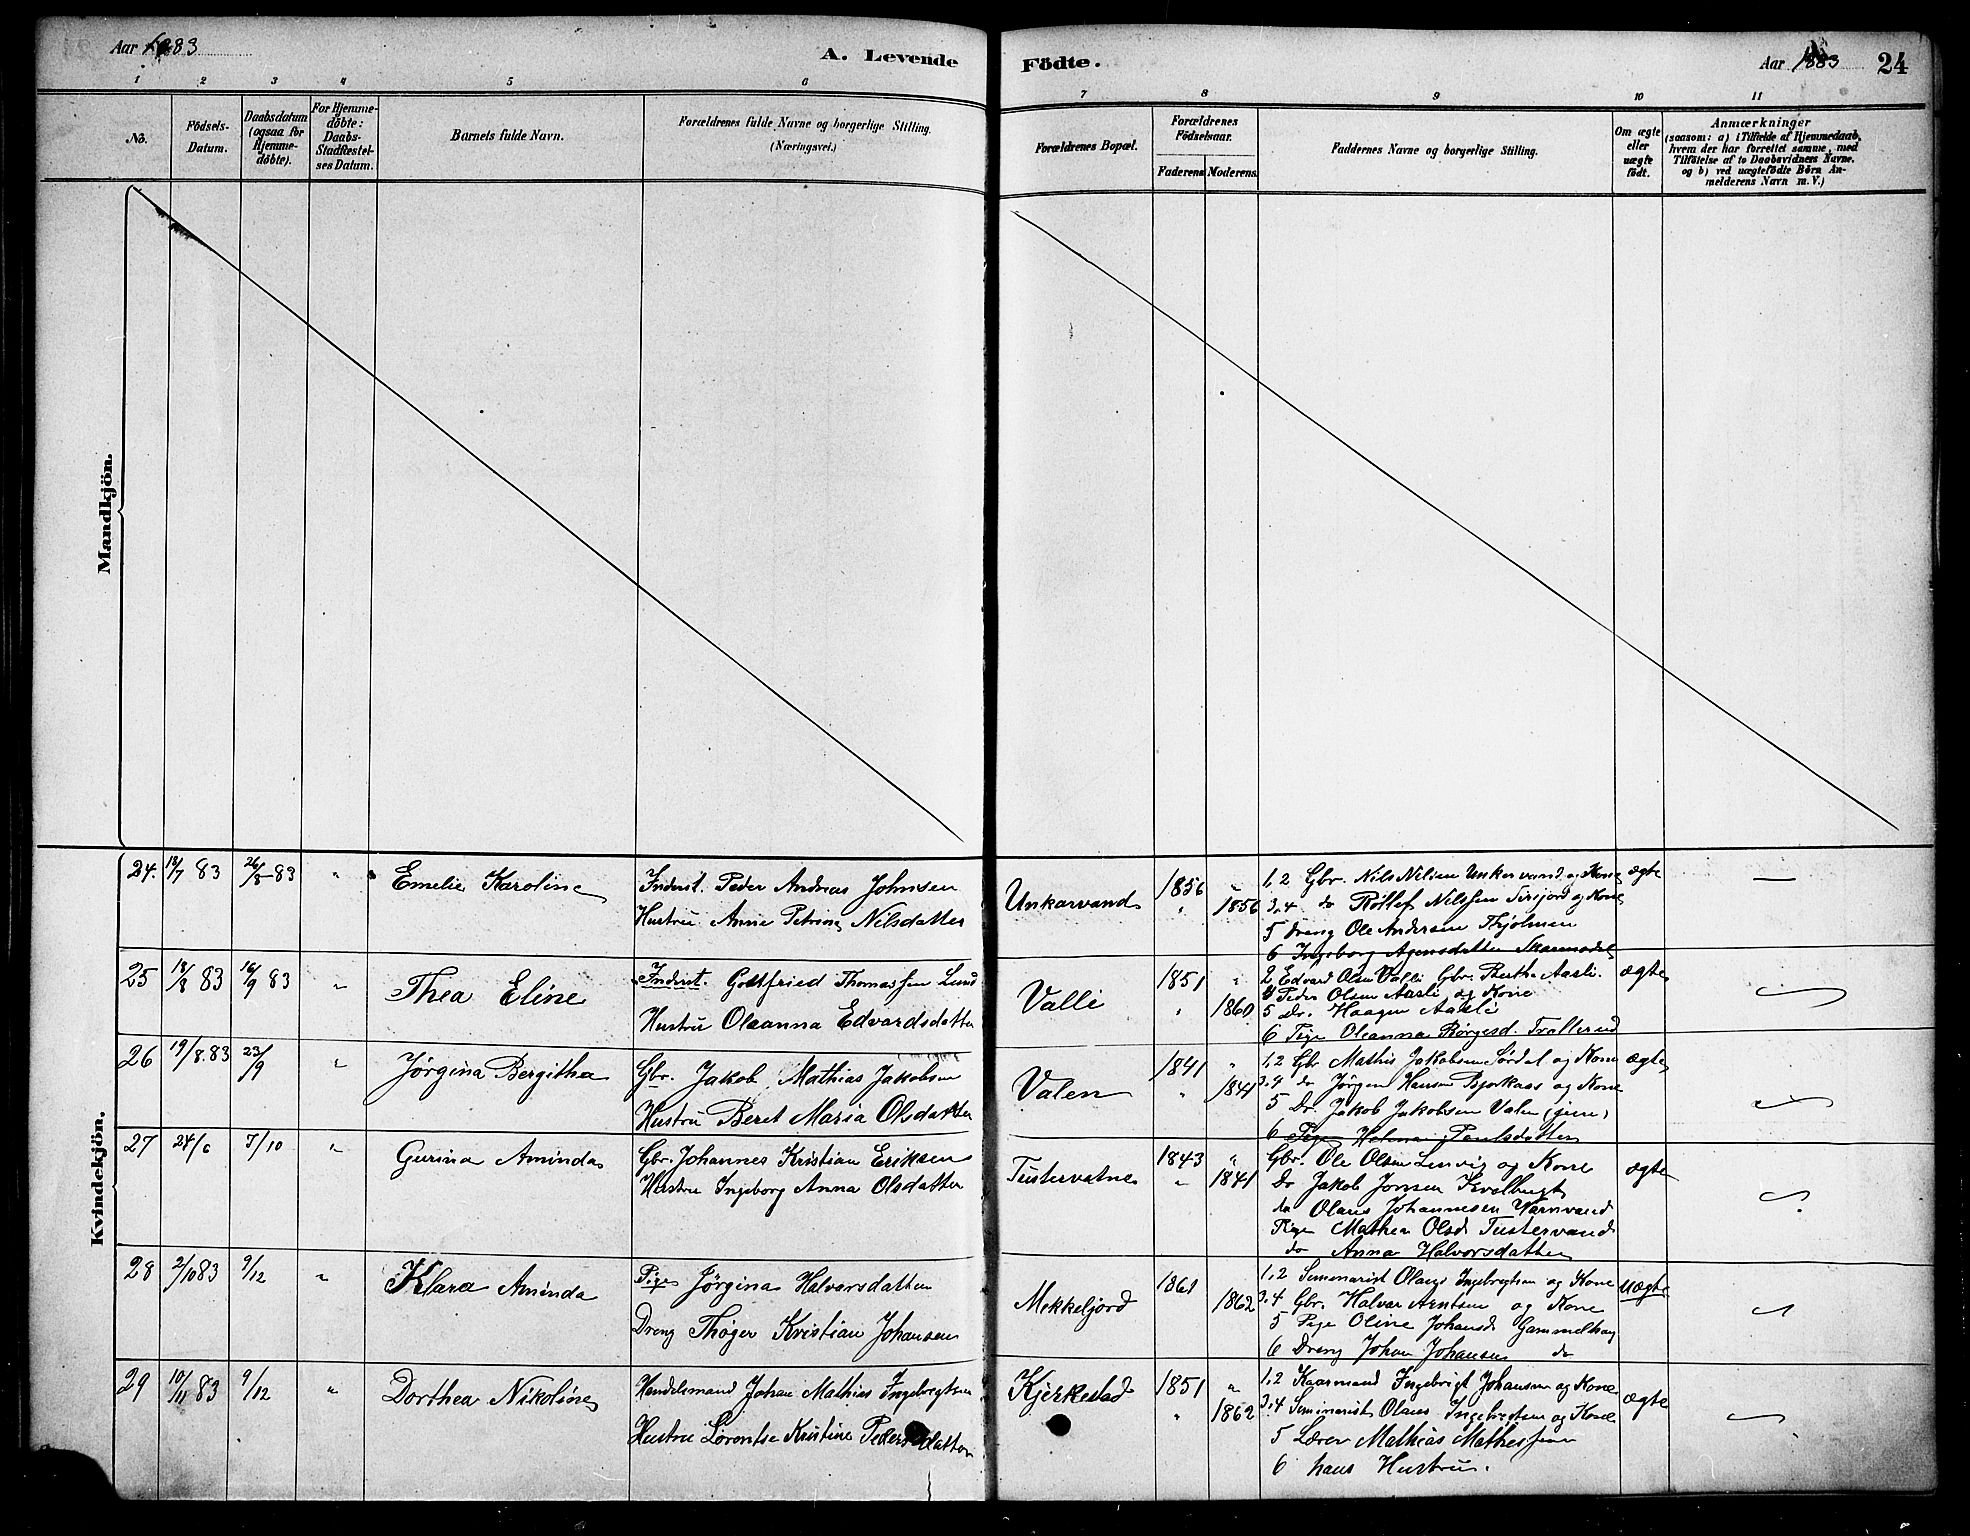 Aar 1883
A. Levende Födte.
Aar 1883 24
1 2 3 4 5 6 7 8 9 10 11
No.
Födsels-Datum.
Daabsdatum (ogsaa for Hjemme-döbte).
For Hjemme-döbte: Daabs-Stadfæstel-ses Datum.
Barnets fulde Navn.
Forældrenes fulde Navne og borgerlige Stilling.
(Næringsvei.)
Forældrenes Bopæl.
Forældrenes Födselsaar.
Faderens. Moderens.
Faddernes Navne og borgerlige Stilling.
Om ægte eller uægte födt.
Anmærkninger
(saasom: a) i Tilfælde af Hjemmedaab,
hvem der har forrettet samme, med
Tilföielse af to Daabsvidners Navne.
og b) ved uægtefödte Börn An-
melderens Navn m. V.)
Mandkjön.
Kvindekjön.
24. 18/7 83 26/8 83 " Emelie Karoline
Inderst. Peder Andreas Johnsen
Hustru Anne Petrine Nilsdatter
Unkarvand 1856 " " 1856
1,2 Gbr. Nils Nilsen Unkervand og Kone ægte
3,4 do Rollef Nilssen og Kone
5 Dreng Ole Andersen
6 Ingeborg Agensdatter
25 18/8 83 16/9 83 " Thea Eline
Inderst. Gottfried Thomassen Lund
Hustru Oleanna Edvardsdatter
Valli 1851 " " 1860
2 Edvard Olsen Valli Gbr. Berthe Aasli. ægte
4 Peder Olsen Aasli og Kone
5 Dr. Haagen Aasli
6 Pige Oleanna Børgesd. Trollerud
26 19/8.83 23/9 " Jørgina Bergitha
Gbr. Jakob Mathias Jakobsen
Hustru Beret Maria Olsdatter
Valen 1841 " " 1841
1,2 Gbr Mathis Jakobsen Sørdal og Kone ægte
3,4 do Jørgen Hansen og Kone
5 Dr. Jakob Jakobsen Valen
6 Pige Helena Paulsdatter
27 24/6 7/10 " Gurina Aminda
Gbr. Johannes Kristian Eriksen
Hustru Ingeborg Anna Olsdatter
Tustervatne 1843 " " 1841
Gbr. Ole Olsen Lenvig og Kone ægte
Do Jakob Jonsen
do Olaus Johannesen Varnvand
Pige Mathea Olsd Tustervand
do Anna Halvorsdatter
28 2/10 83 9/12 " Klara Aminda
Pige Jørgina Halvorsdatter
Dreng Thøger Kristian Johansen
Mekkeljord 1861 1862
1,2 Seminarist Olaus Ingebrigtsen og Kone uægte
3,4 Gbr. Halvor Arntsen og Kone
5 Pige Oline Johansd Gammelhaug
6 Dreng Johan Johansen do
29 10/11 83 9/12 " Dorthea Nikoline
Handelsmand Johan Mathias Ingebrigtsen
Hustru Lorentse Kristine Pedersdatter
Kjerkestad 1851 " " 1862
1,2 Kaarmand Ingebrigt Johansen og Kone ægte
3,4 Seminarist Olaus Ingebrigtsen og Kone
5 Lærer Mathias Mathessen
6 hans Hustru.